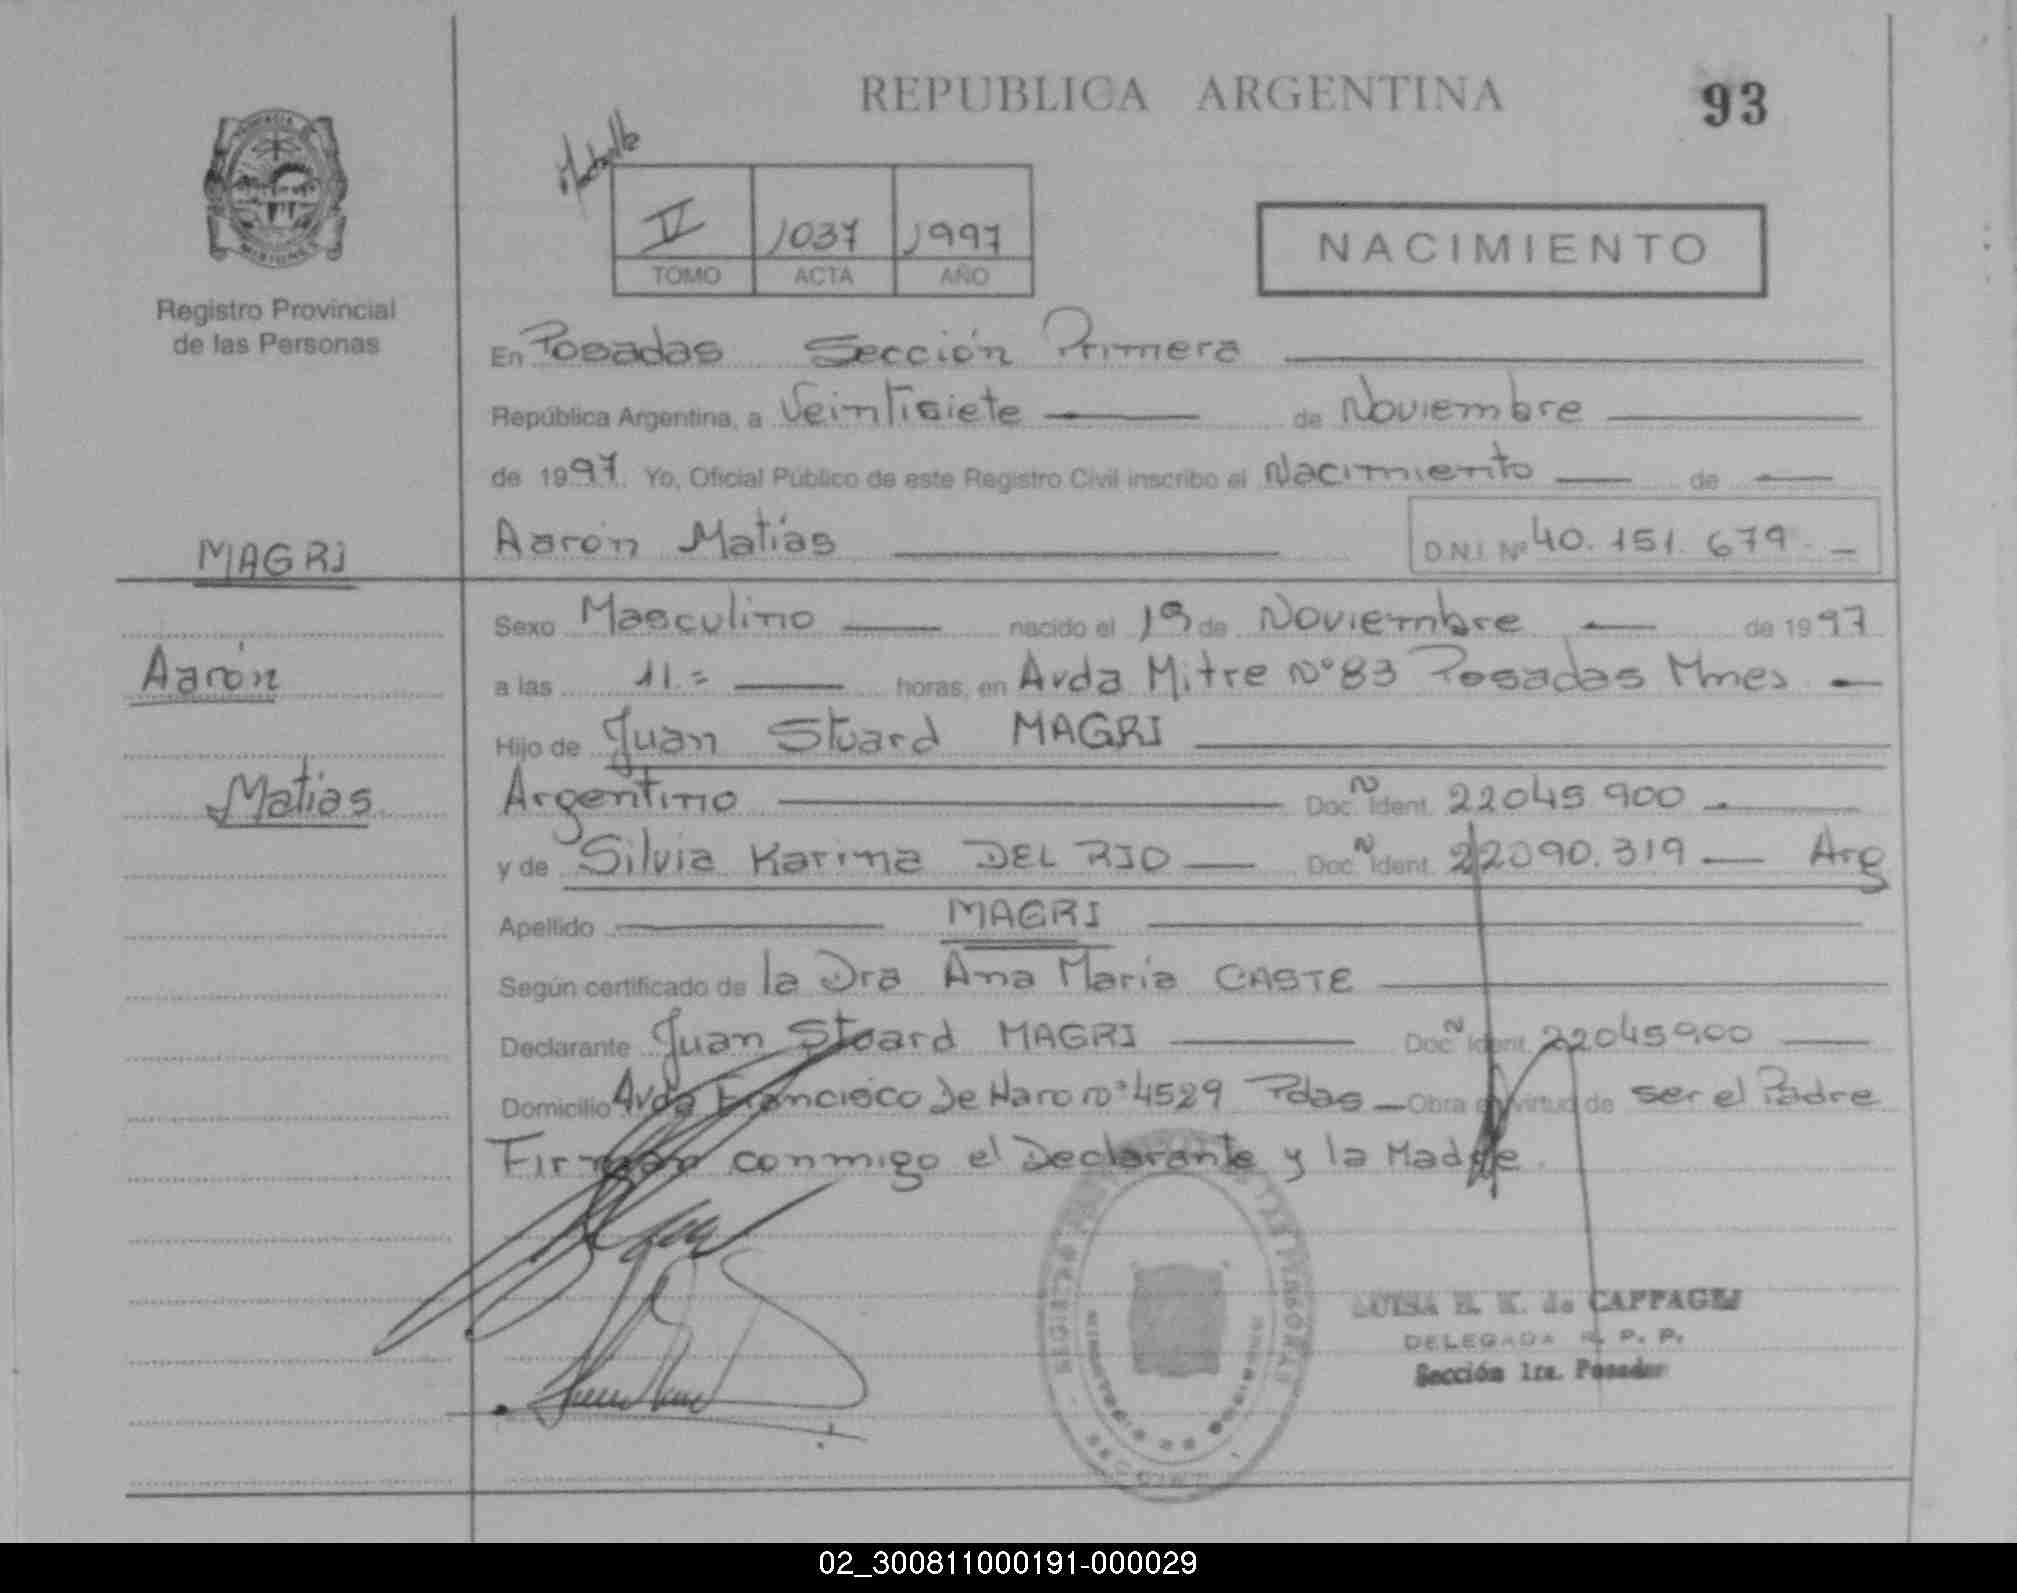 REPUBLICA ARGENTINA
93
IV 1037 1997
TOMO ACTA AÑO
NACIMIENTO
Registro Provincial
de las Personas
En Posadas Sección Primera
República Argentina, a Veintisiete de Noviembre
de 1997. Yo, Oficial Público de este Registro Civil inscribo el Nacimiento de
Aarón Matías
D.N.I. Nº 40.151.679.
MAGRI
Aarón
Matías
Sexo Masculino nacido el 19 de Noviembre de 1997
a las 11.= horas, en Avda Mitre Nº 83 Posadas Mnes
Hijo de Juan Stuard MAGRI
Argentino Doc. N Ident. 22045.900
y de Silvia Karina DEL RIO Doc. N Ident. 22090.319 Arg
Apellido MAGRI
Según certificado de la Dra Ana María CASTE
Declarante Juan Stuard MAGRI Doc. N Ident. 22045900
Domicilio Avda Francisco de Haro nº 4529 Pdas Obra en virtud de ser el Padre
Firman conmigo el Declarante y la Madre.
LUISA E. K. de CAPPAGLI
DELEGADA R. P. P.
Sección 1ra. Posadas
02_300811000191-000029